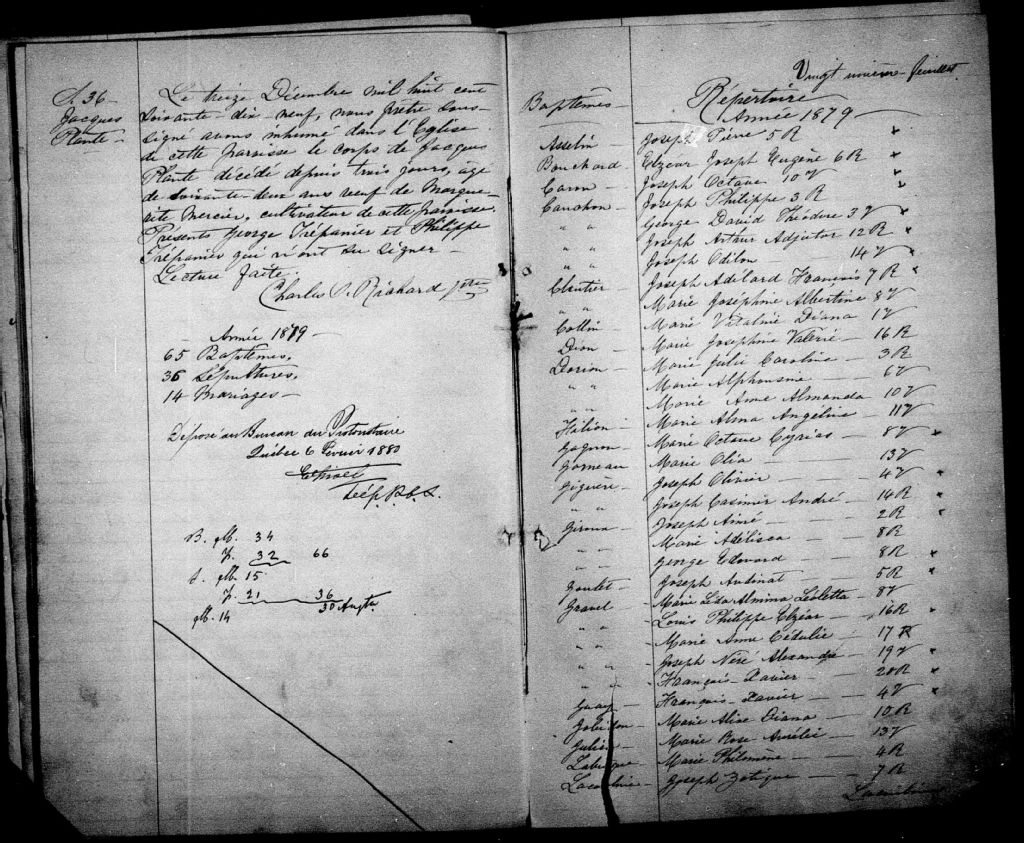 S. 36
Jacques
Plante
Le treize Décembre mil huit cent
soixante-dix neuf, nous prêtre sous-
signé avons inhumé dans l'Eglise
de cette paroisse le corps de Jacques
Plante décédé depuis trois jours, agé
de soixante-deux ans veuf de Margue-
rite Mercier, cultivateur de cette paroisse.
Présents George Trépanier et Philippe
Trépanier qui n'ont su signer
Lecture faite.
Charles S. Richard ptre
Année 1879
65 Baptêmes,
36 Sépultures,
14 Mariages
Déposé au Bureau du Protonotaire
Québec 6 Février 1880
Dép. P.C.S.
B. M. 34
F. 32 66
S. M. 15
F. 21 36
M. 14
Vingt unième feuillet.
Répertoire
Baptêmes Année 1879
Asselin Joseph Pierre 5 R
Bouchard Elzéar Joseph Eugène 6 R
Caron Joseph Octave 10 V
Cauchon Joseph Philippe 3 R
" " George David Théodore 3 V
" " Joseph Arthur Adjutor 12 R
" " Joseph Odilon 14 V
Cloutier Joseph Adélard François 7 R
" " Marie Joséphine Albertine 8 V
Collin Marie Vitaline Diana 1 V
Dion Marie Joséphine Valérie 16 R
Dorion Marie Julie Caroline 3 R
" " Marie Alphonsine 6 V
" " Marie Anne Almanda 10 V
Filion Marie Alma Angelina 11 V
Gagnon Marie Octave Cyrias 8 V
Garneau Marie Olia 13 V
Giguère Joseph Olivier 4 V
" " Joseph Casimir André 14 R
Giroux Joseph Aimé 2 R
" " Marie Adélisca 8 R
" " George Edouard 8 R
Goulet Joseph Audinat 5 R
Gravel Marie Léda Almina 8 V
" " Louis Philippe Elzéar 16 R
" " Marie Anne Cédulie 17 R
" " Joseph Néré Alexandre 19 V
" " François Xavier 20 R
Guay François Xavier 4 V
Jobidon Marie Alice Diana 10 R
Julien Marie Rose Aurélie 13 V
Labrèque Marie Philomène 4 R
Lacombie Joseph Zotique 7 R